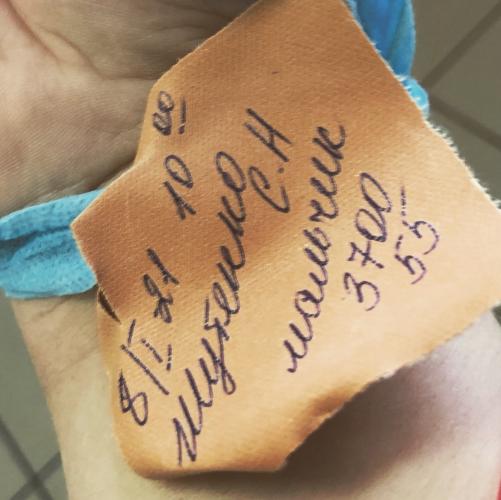 8/I 21 10 00
Шутенко
С.Н
мальчик
3700
55